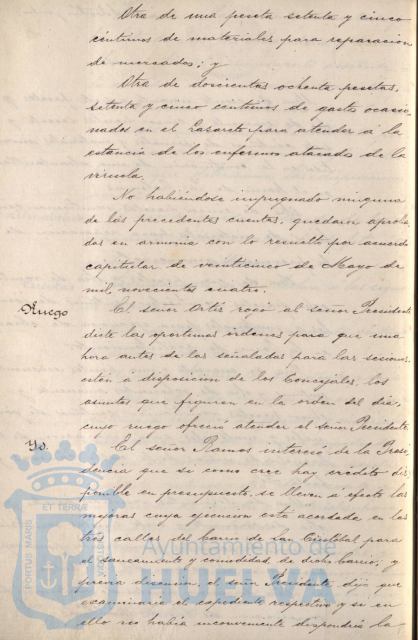 Otra de una peseta setenta y cinco
céntimos de materiales para reparacion
de mercados; y
Otra de doscientas ochenta pesetas,
setenta y cinco céntimos de gastos ocasio-
nados en el Lazareto para atender á la
estancia de los enfermos atacados de la
viruela.
No habiéndose impugnado ninguna
de las precedentes cuentas, quedaron aproba-
das en armonia con lo resuelto por acuerdo
capitular de veinticinco de Mayo de
mil novecientos cuatro.
Ruego
El señor Ortiz rogó al señor Presidente
dicte las oportunas órdenes para que una
hora antes de las señaladas para las sesiones
estén á disposicion de los Concejales, los
asuntos que figuran en la orden del dia,
cuyo ruego ofreció atender el señor Presidente.
Yd.
El señor Ramos interesó de la Presi-
dencia que si como cree hay crédito dis-
ponible en presupuesto, se lleven á efecto las
mejoras cuya ejecucion está acordada en las
tres calles del barrio de San Cristóbal para
el saneamiento y comodidad de dicho barrio; y
previa discusion, el señor Presidente dijo que
examinaria el expediente respectivo y si en
ello no habia inconveniente dispondria la
PORTUS MARIS
ET TERRÆ
CUSTODIA
Ayuntamiento de
HUELVA